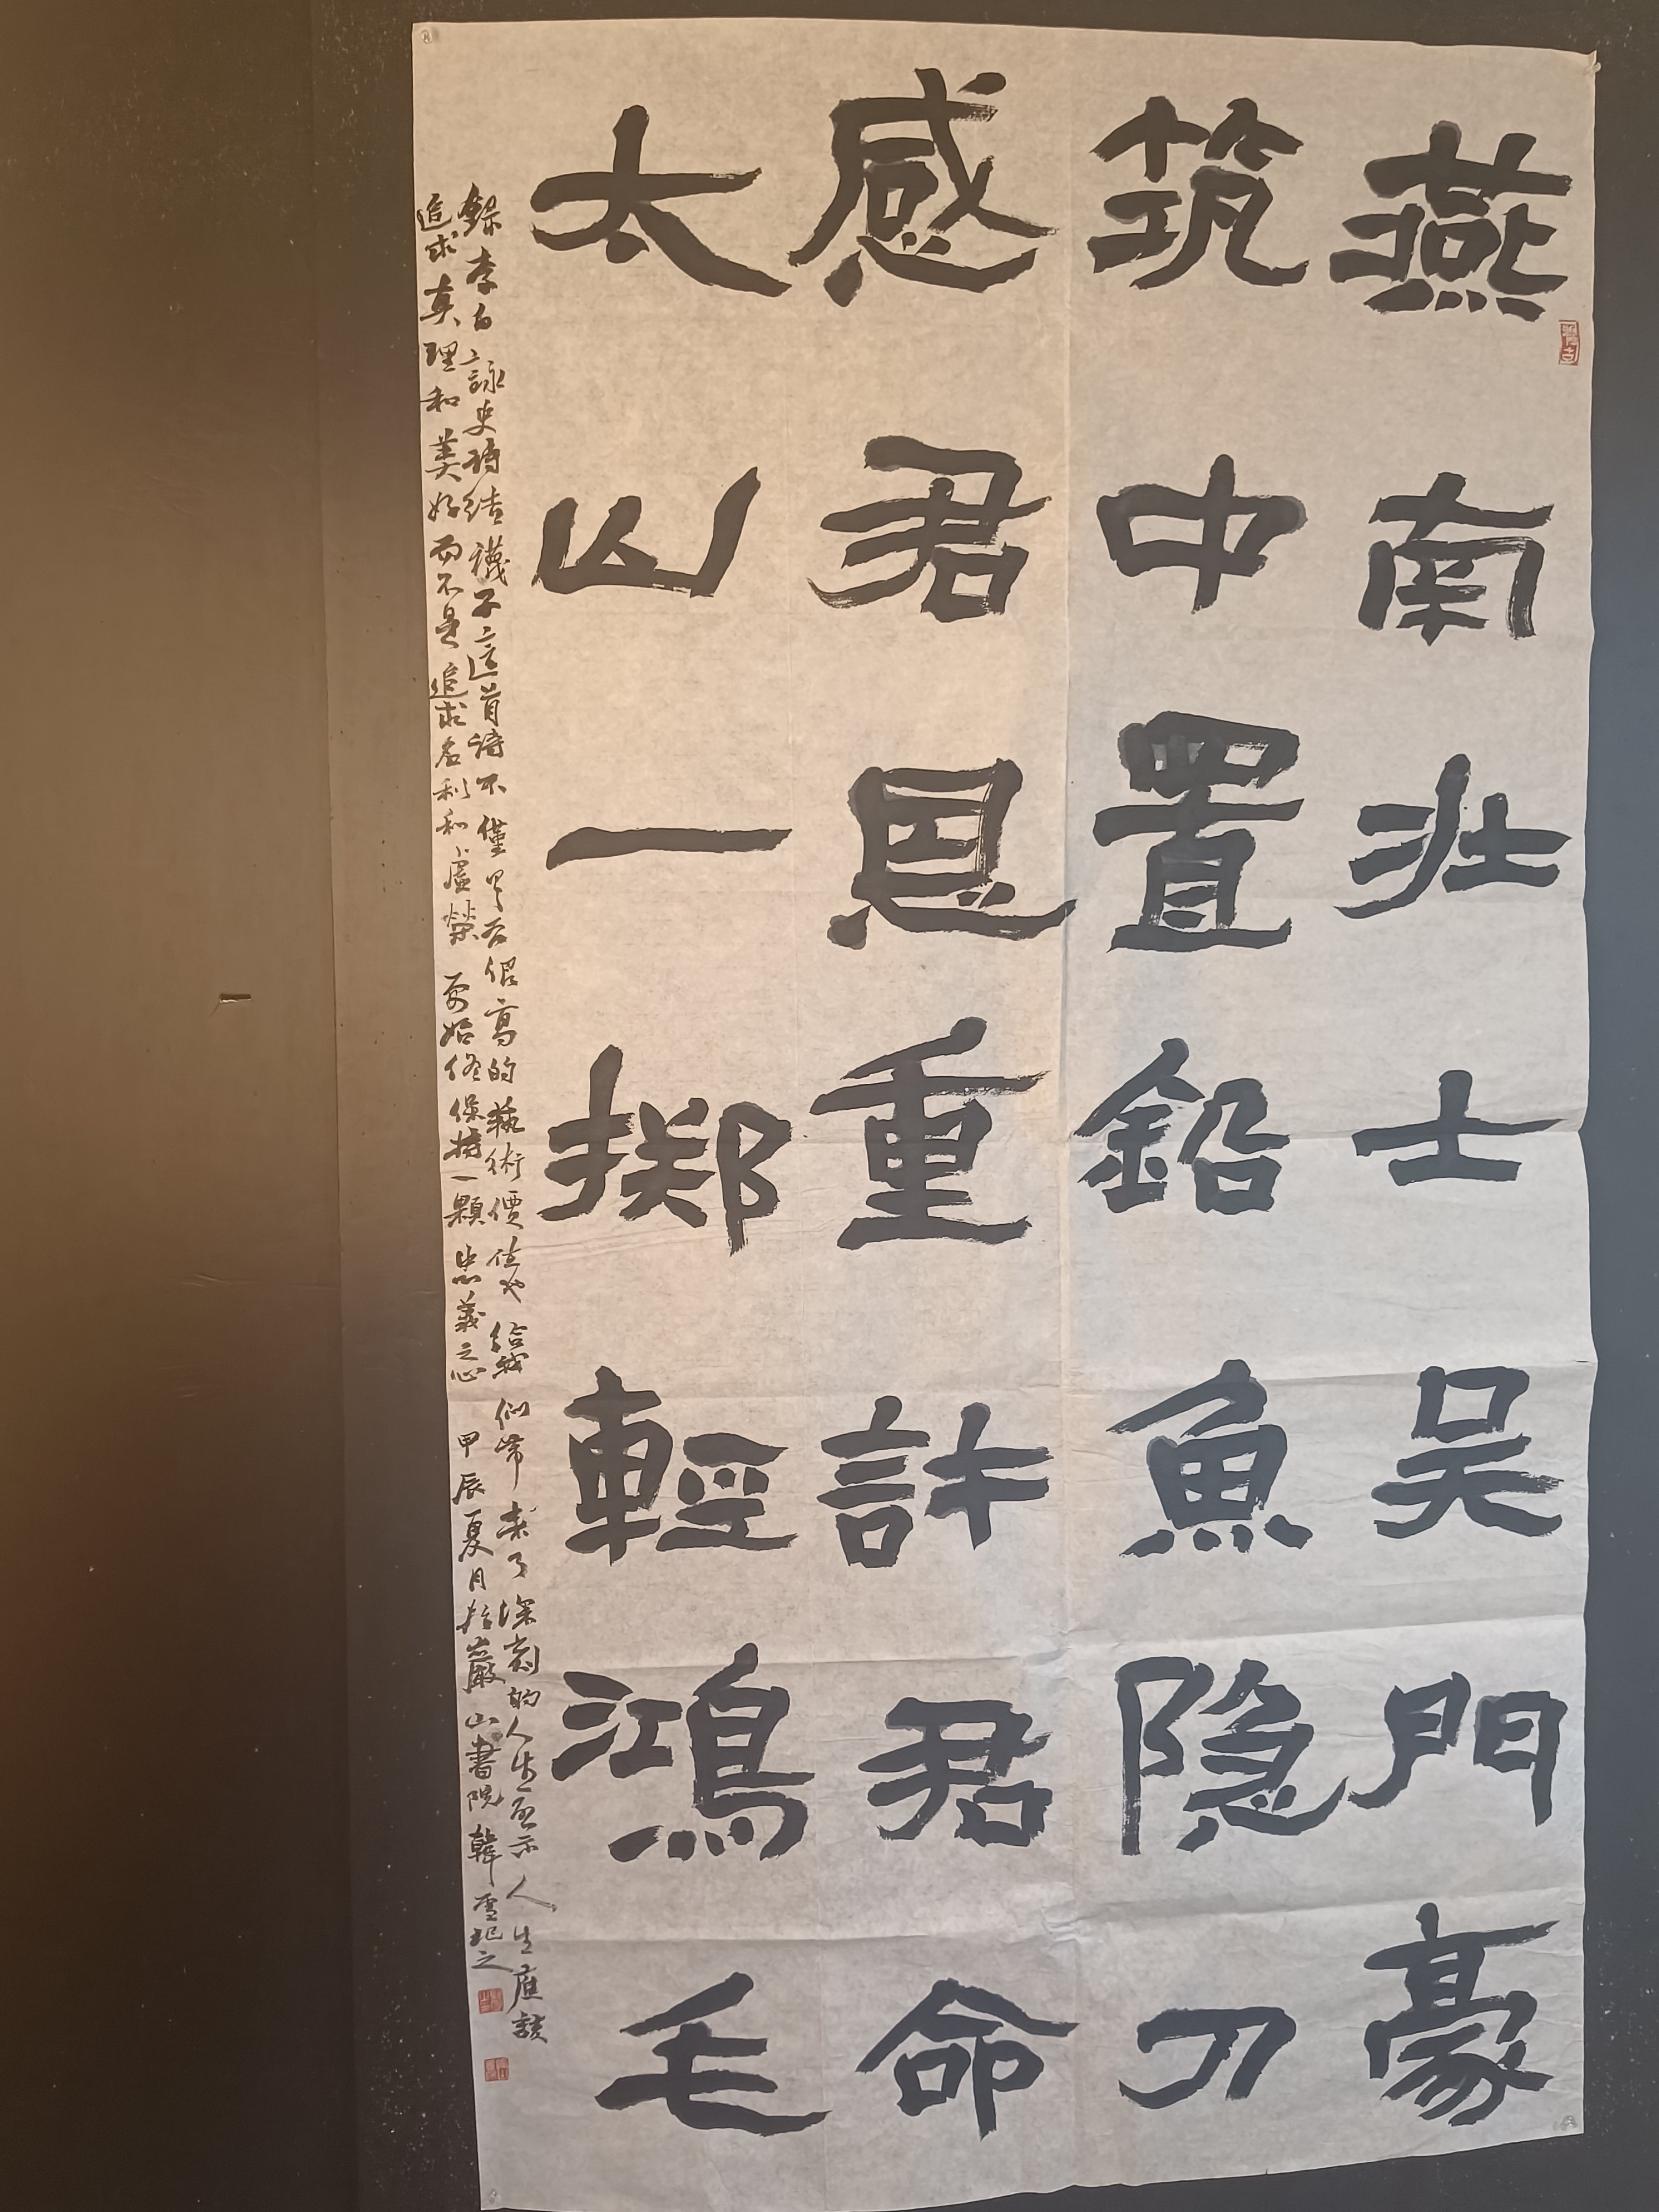 燕南壯士吴門豪
筑中置鉛魚隐刀
感君恩重許君命
太山一掷輕鴻毛
錄李白詠史詩结襪子這首詩不僅具有很高的藝術價值也给我們帶来了深刻的人生啟示人生應該
追求真理和美好而不是追求名利和虛榮要始终保持一顆忠義之心甲辰夏月於巖山書院韓雪圯之